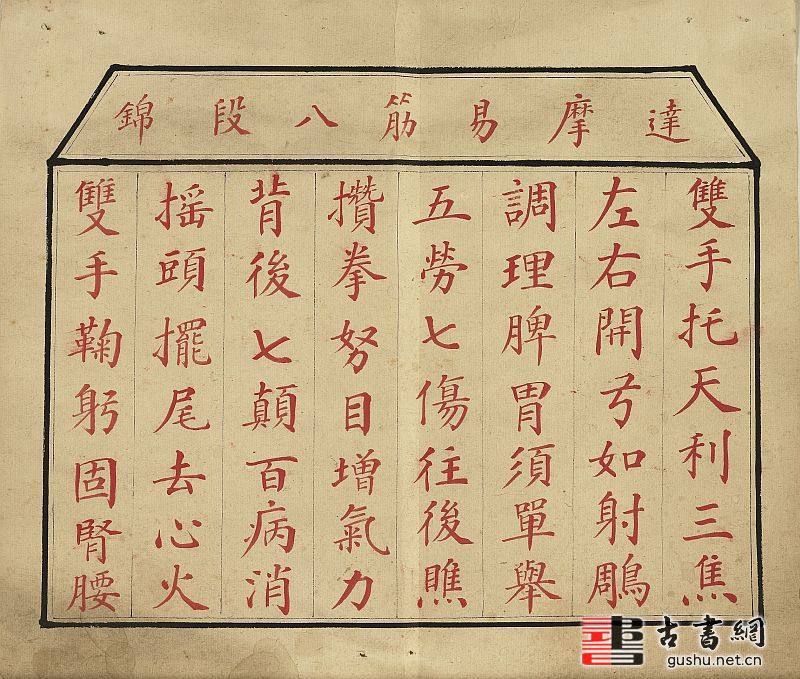 達摩易筋八段錦
雙手托天利三焦
左右開弓如射鵰
調理脾胃須單舉
五勞七傷往後瞧
攢拳努目增氣力
背後七顛百病消
搖頭擺尾去心火
雙手鞠躬固腎腰
古書網
gushu.net.cn